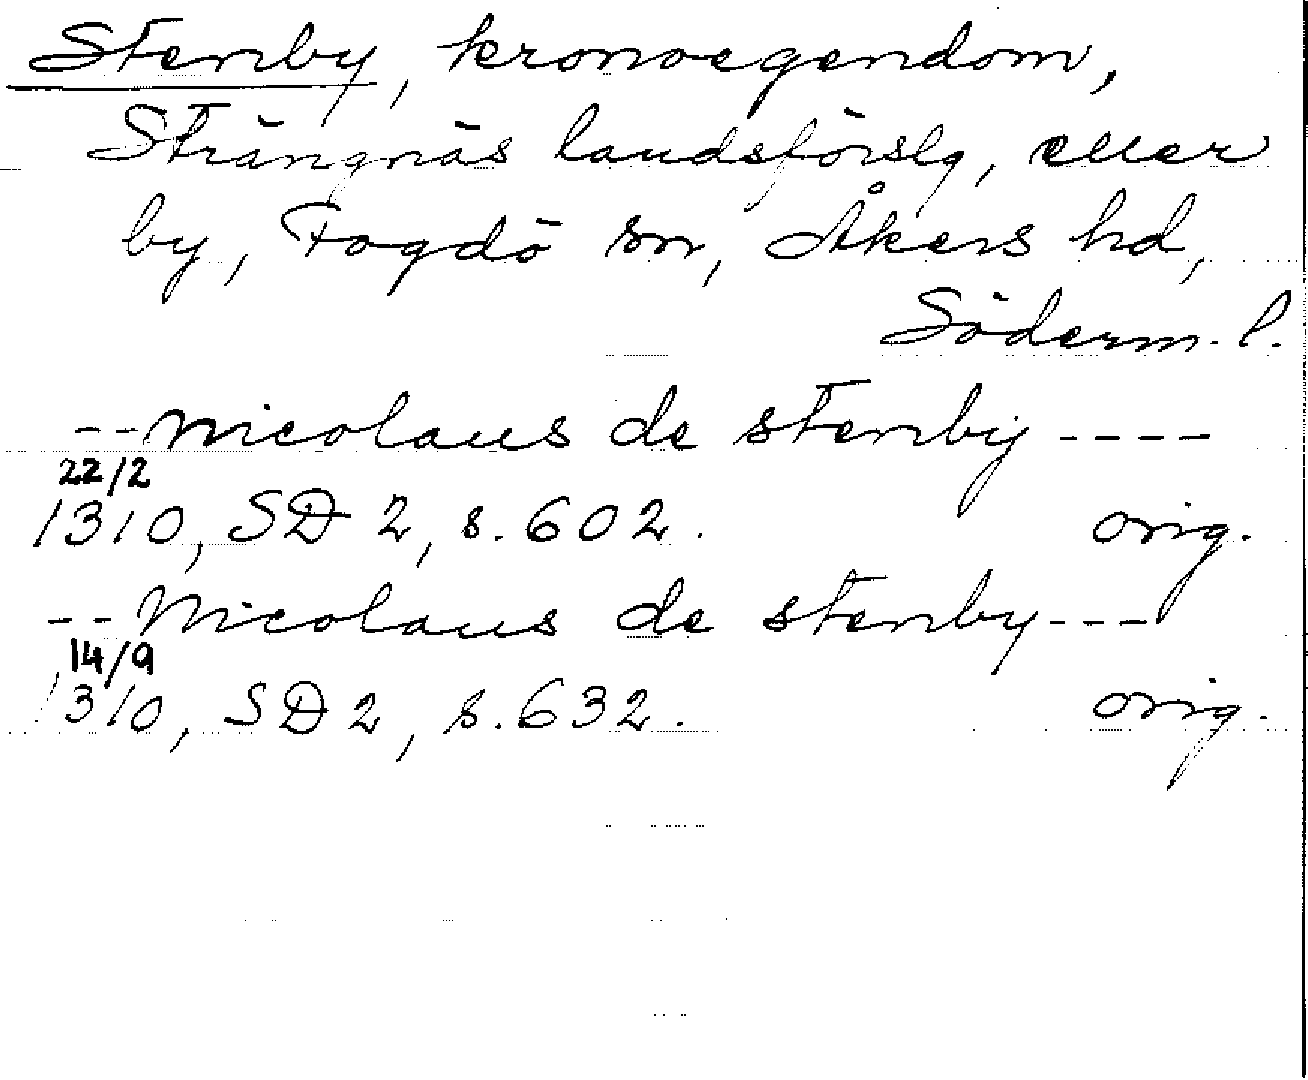 Stenby, kronoegendom,
Strängnäs landsförslg, eller
by, Fogdö sn, Åkers hd,
Söderm. l.
-- Nicolaus de stenby ----
22/2
1310, SD 2, s. 602. orig.
-- Nicolaus de stenby ---
14/9
1310, SD 2, s. 632. orig.